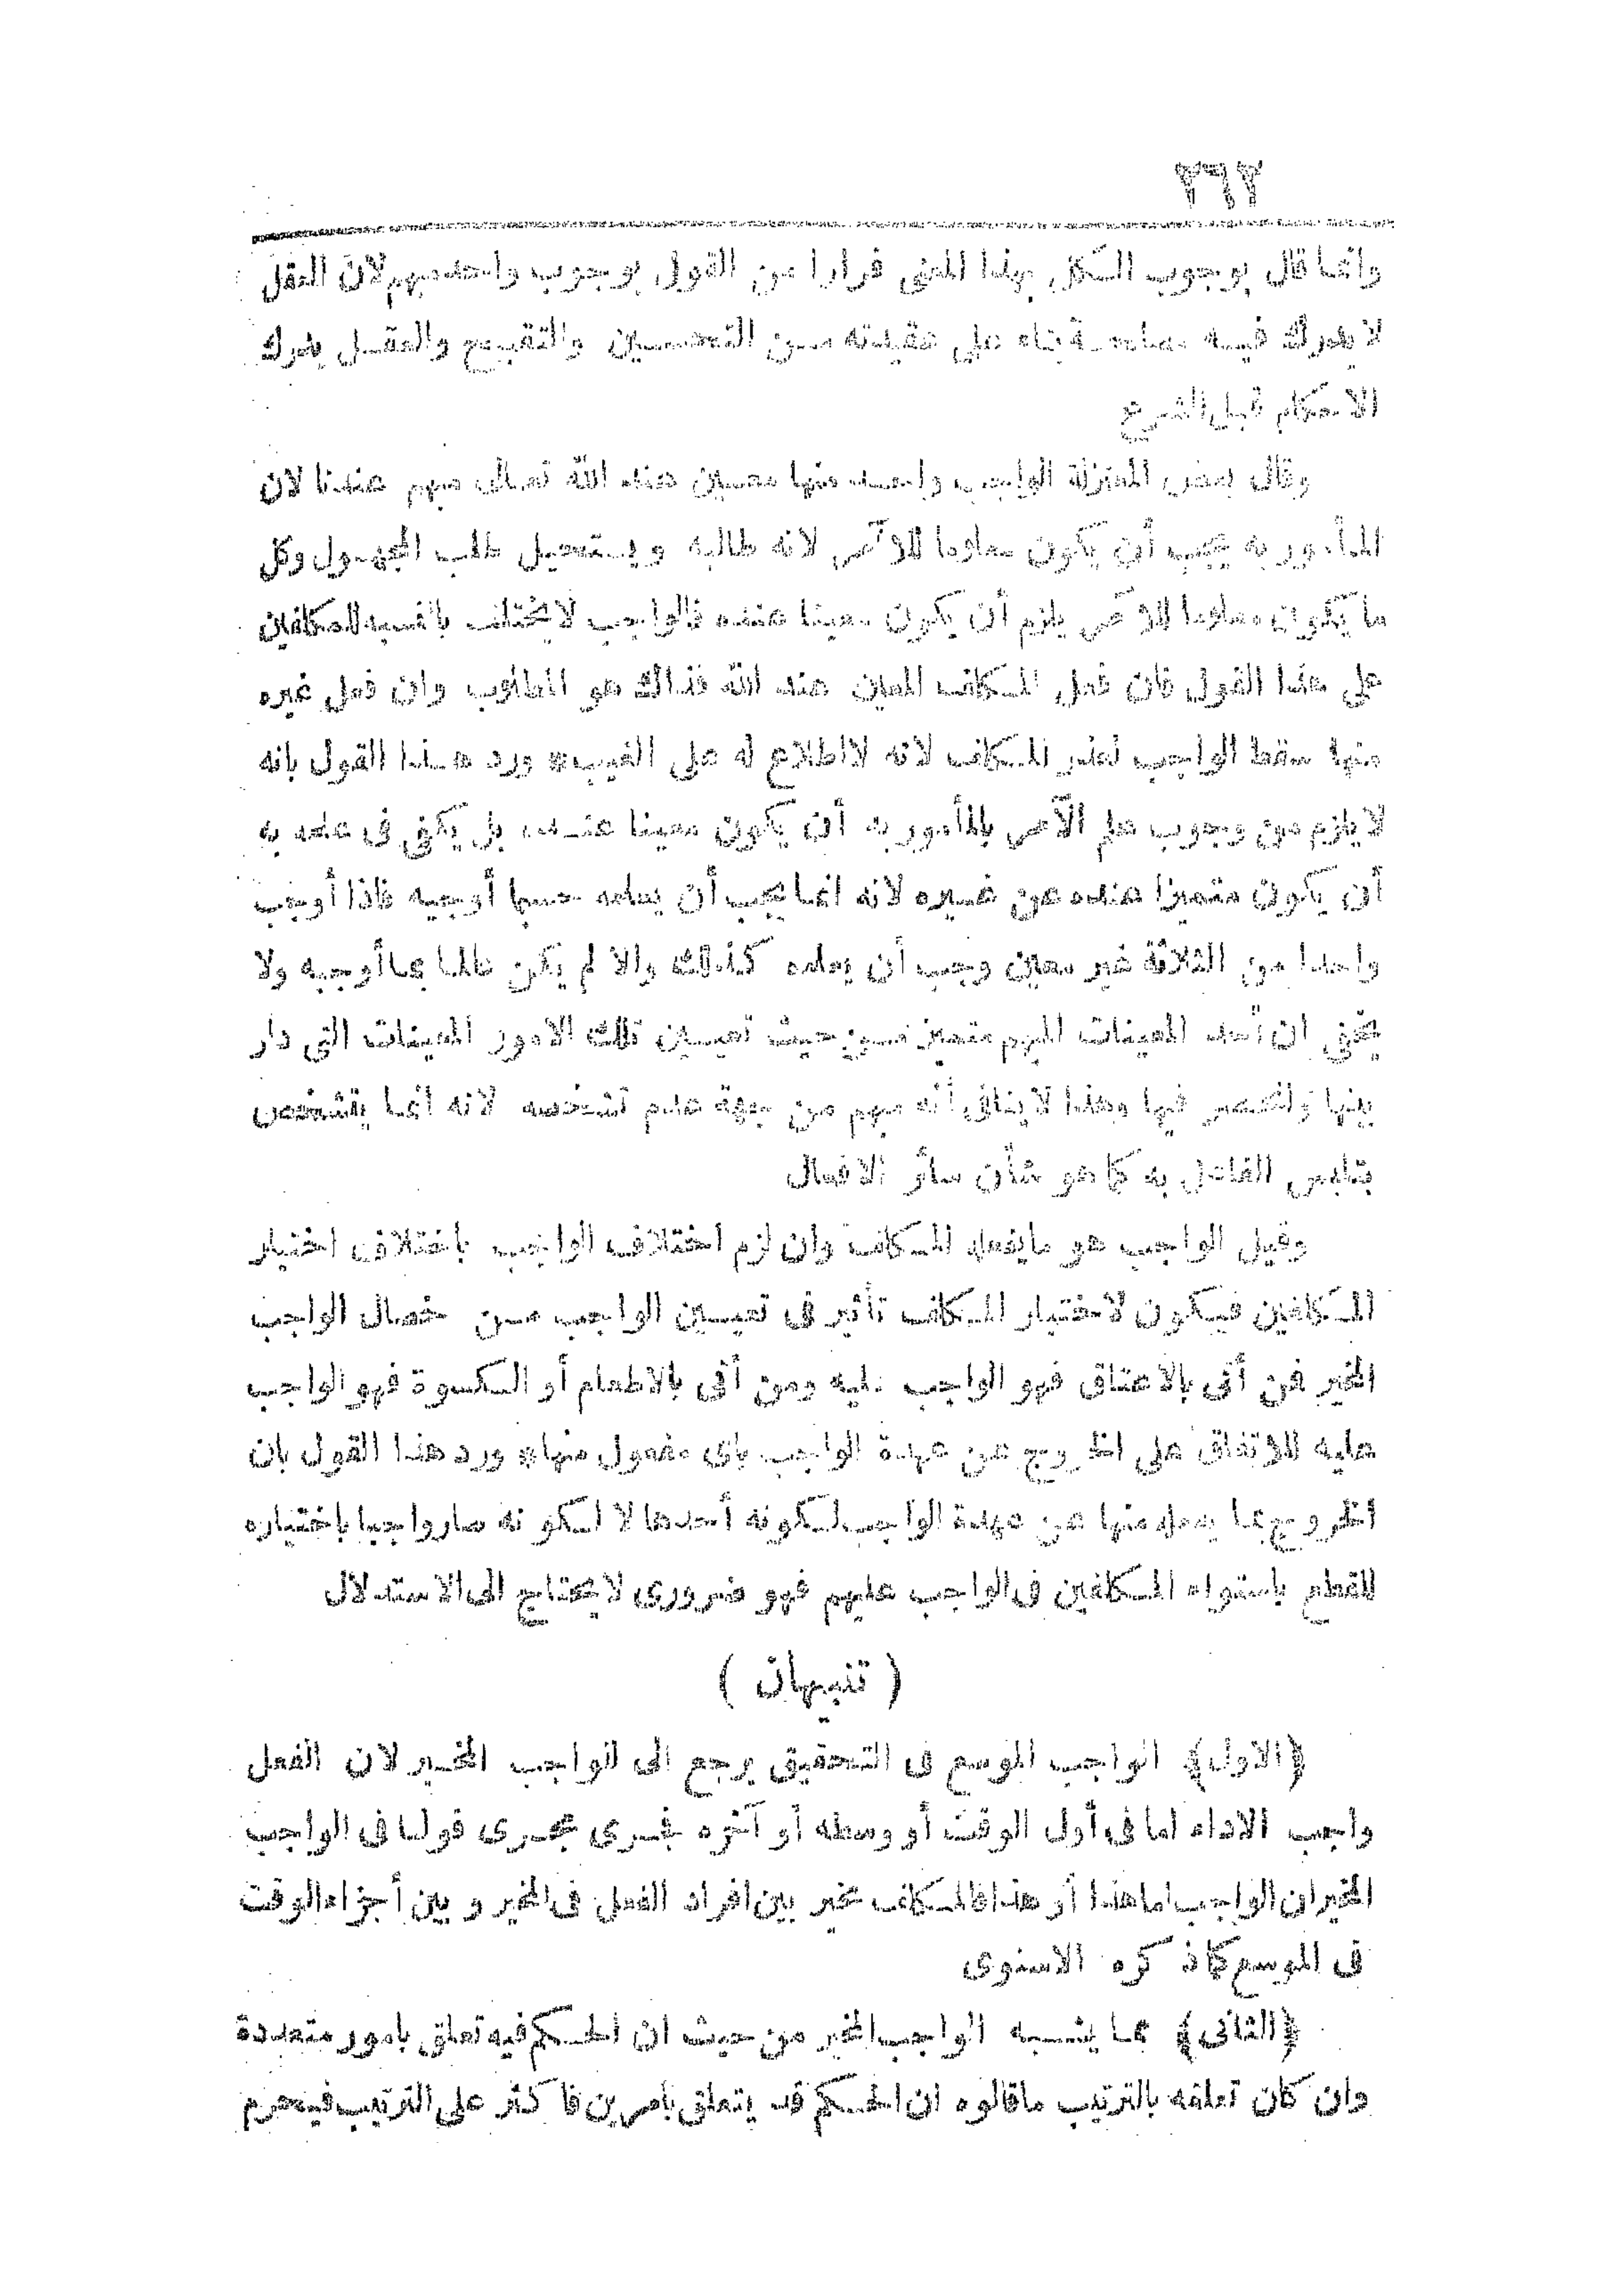 ٢٦٢
وانما قال بوجوب الكل بهذا المعنى فرارا من القول بوجوب واحد مبهم لان العقل
لا يدرك فيه مصلحة بناء على عقيدته من التحسين والتقبيح والعقل يدرك
الاحكام قبل الشرع
وقال بعض المعتزلة الواجب واحد منها معين عند الله تعالى مبهم عندنا لان
المأمور به يجب أن يكون معلوما للآمر لانه طالبه ويستحيل طلب المجهول وكل
ما يكون معلوما للآمر يلزم أن يكون معينا عنده فالواجب لا يختلف بالنسبة للمكلفين
على هذا القول فان فعل المكلف المعين عند الله فذاك هو المطلوب وان فعل غيره
منها سقط الواجب لعذر المكلف لانه لا اطلاع له على الغيب * ورد هذا القول بانه
لا يلزم من وجوب علم الآمر بالمأمور به أن يكون معينا عنده بل يكفى فى علمه به
أن يكون متميزا عنده عن غيره لانه انما يجب أن يعلمه حسبما أوجبه فاذا أوجب
واحدا من الثلاثة غير معين وجب أن يعلمه كذلك والا لم يكن عالما بما أوجبه ولا
يخفى ان أحد المعينات المبهم متميز من حيث تعيين تلك الامور المعينات التى دار
بينها وانحصر فيها وهذا لا ينافى أنه مبهم من جهة عدم تشخصه لانه انما يتشخص
بتلبس الفاعل به كما هو شأن سائر الافعال
وقيل الواجب هو ما يفعله المكلف وان لزم اختلاف الواجب باختلاف اختيار
المكلفين فيكون لاختيار المكلف تأثير فى تعيين الواجب من خصال الواجب
المخير فمن أتى بالاعتاق فهو الواجب عليه ومن أتى بالاطعام أو الكسوة فهو الواجب
عليه للاتفاق على الخروج عن عهدة الواجب باى مفعول منها * ورد هذا القول بان
الخروج بما يعمله منها عن عهدة الواجب لكونه أحدها لا لكونه صار واجبا باختياره
للقطع باستواء المكلفين فى الواجب عليهم فهو ضرورى لا يحتاج الى الاستدلال
( تنبيهان )
﴿الاول﴾ الواجب الموسع فى التحقيق يرجع الى الواجب المخير لان الفعل
واجب الاداء اما فى أول الوقت أو وسطه أو آخره فجرى مجرى قولنا فى الواجب
المخير ان الواجب اما هذا أو هذا فالمكلف مخير بين افراد الفعل فى المخير وبين أجزاء الوقت
فى الموسع كما ذكره الاسنوى
﴿الثانى﴾ مما يشبه الواجب المخير من حيث ان الحكم فيه تعلق بامور متعددة
وان كان تعلقه بالترتيب ما قالوه ان الحكم قد يتعلق بامرين فاكثر على الترتيب فيحرم